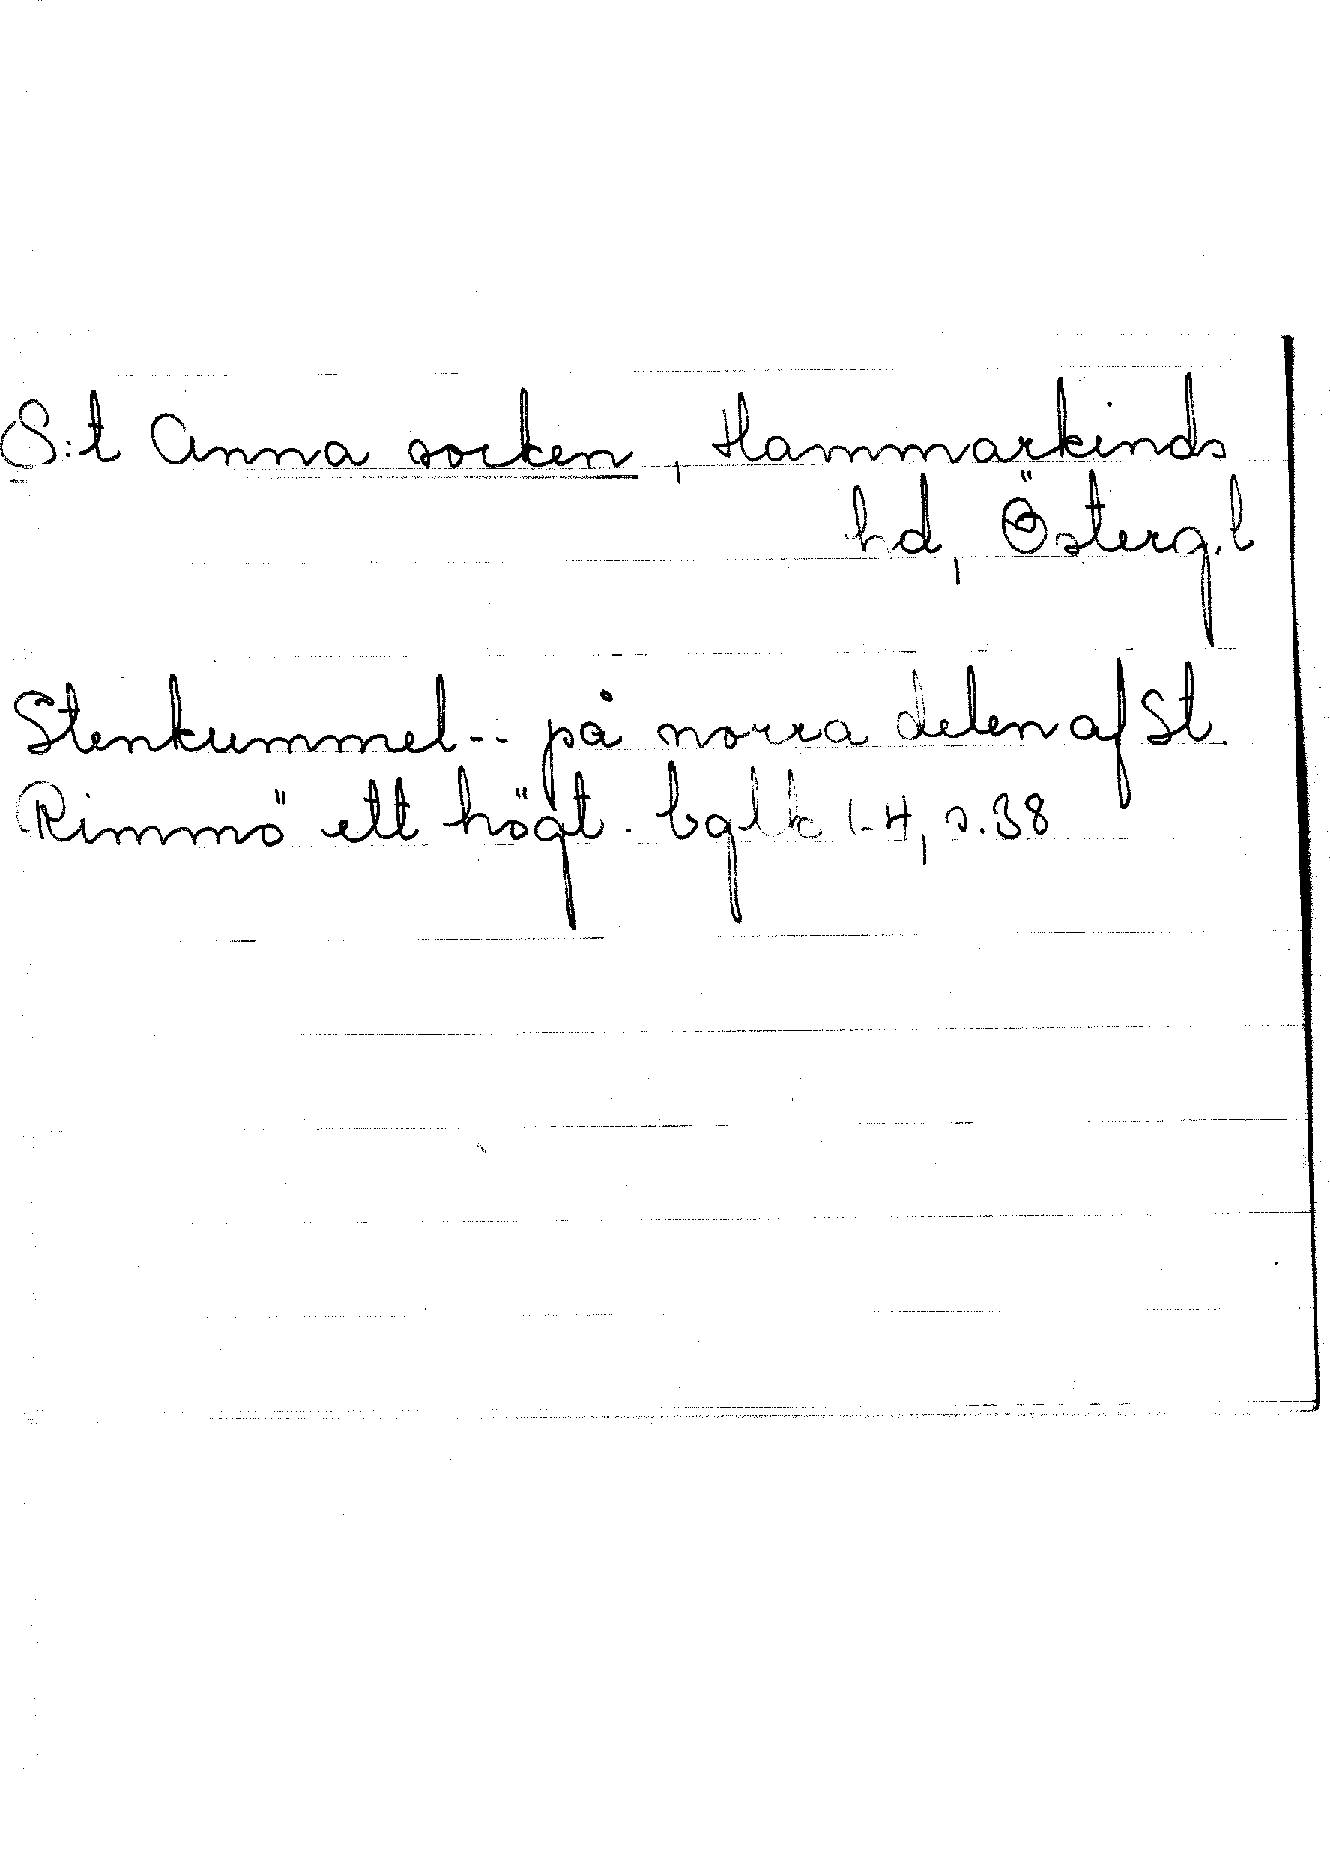 S:t Anna socken, Hammarkinds
hd, Österg.l
Stenkummel -- på norra delen af St.
Rimmö ett högt. bglk 1-4, s. 38